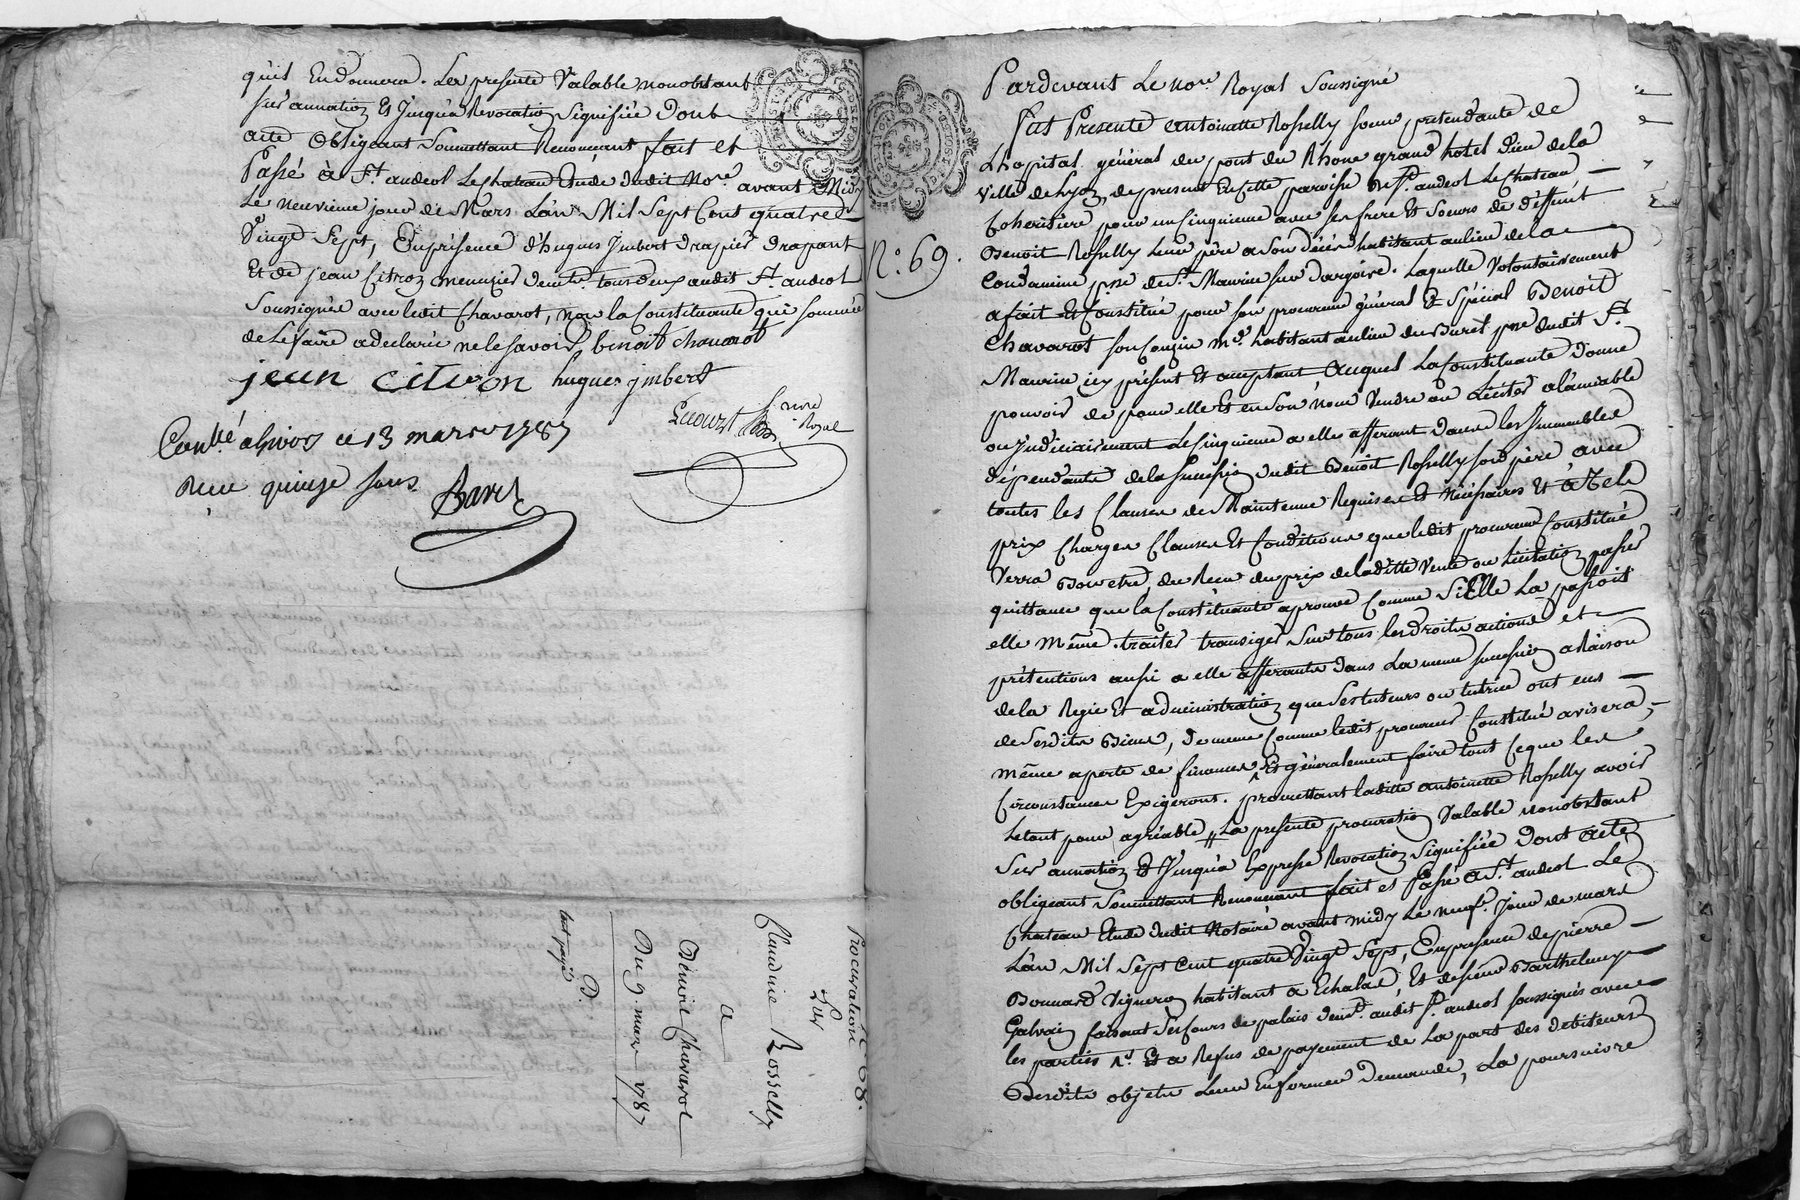 qu'il En donnera. Les presente Valable nonobstant
sur annation Et Jusqu'a Revocation Signifiée Dont
acte obligeant Soumettant Renonceant fait et
Passé à St. andeol Le Chateau Etude dudit Nore. avant Midy
Le neuvieme jour de Mars L'an Mil Sept Cent quatre
Vingt Sept, En présence d'hugues Jmbert drapier drapant
Et de jean Citron menuzier demts. tous deux audit St. andeol
Soussignés avec ledit Chavarot, non la Constituante qui sommée
de Le faire a declaré ne le savoir benoit chavarot
jean citron hugues jmbert
nore
Royal
Conllé a Givors ce 13 mars 1787
Recu quinze sous
Procuration
68.
Par
Claudine Rosselly
a
Benoit Chavarot
Du 9. mars 1787
D.
tout payé
Pardevant Le nore. Royal Soussigné
Fut Presente antoinette Rosselly soeur pretendante de
L'hopital général du pont du Rhone grand hotel Dieu de la
Ville de Lyon, de present En cette paroisse de St. andeol Le Chateau
Coheritiere pour un Cinquieme avec ses frere Et Soeurs de deffunt
N°. 69.
Benoit Rosselly leur père a son décès habitant au lieu de la
Condamine psse. de St. Maurice sur dargoire. Laquelle Volontairement
a fait et Constitué pour son procureur général Et Spécial Benoit
Chavarot son Couzin md. habitant au lieu du Buret psse. dudit St.
Maurice icy présent Et acceptant auquel La Constituante donne
pouvoir de pour elle Et en son nom Vendre ou Liciter a l'amiable
ou Judiciairement Le Cinquieme a elle afferant dans les Jmmeubles
dépendants de la succession dudit Benoit Rosselly son père avec
toutes les Clauses de Maintenue Requises Et nécéssaires Et à Tels
prix Charges Clauses Et Conditions que ledit procureur Constitué
Verra Bon etre, du Recu du prix de laditte Vente ou Licitation passer
quittance que la Constituante aprouve Comme Si Elle La passoit
elle même. traiter transiger sur tous les droits actions et
prétentions aussi a elle afferants dans La meme succession a Raison
de la Regie Et administration que Ses tuteurs ou tutrice ont eus
de Sesdits Biens, de meme Comme ledit procureur Constitué avisera,
même a perte de finances, Et généralement faire tout Ce que les
Circonstances Exigeront. promettant laditte antoinette Rosselly avoir
Le tout pour agréable // La presente procuration Valable nonobstant
Sur annation Et Jusqu'a Expresse Revocation Signifiée dont acte
obligeant Soumettant Renonceant fait et Passé a St. andeol Le
Chateau Etude dudit Notaire avant midy Le neufe. Jour de mars
L'an Mil Sept Cent quatre Vingt Sept, En presence de pierre
Bonnard Vigneron habitant a Echalas, Et de sieur Barthelemy
Galvain faisant Ses Cours de palais demt. audit St. andeol soussignés avec
les parties Et a Refus de payement de La part des débiteurs
Desdits objets Leur En former Demande, La poursuivre